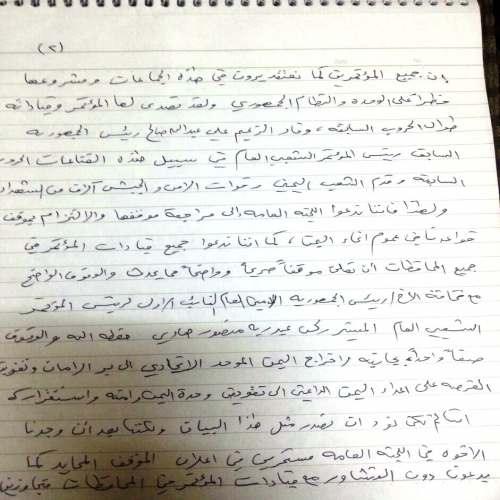 (٢)
إن جميع المؤتمريين كما نعتقد يرون في هذه الجماعات ومشروعها
خطراً على الوحده والنظام الجمهوري ولقد تصدى لها المؤتمر وقياداته
طوال الحروب السابقه ، وقاد الزعيم علي عبدالله صالح رئيس الجمهوريه
السابق رئيس المؤتمر الشعبي العام في سبيل هذه القناعات الحروب
السابقة وقدم الشعب اليمني وقوات الامن والجيش آلاف من
ولهذا فاننا ندعوا اللجنه العامه الى مراجعة موقفها والالتزام بموقف
قواعد في عموم انحاء اليمن ، كما اننا ندعوا جميع قيادات المؤتمر في
جميع المحافظات ان تعلن موقفاً صريحاً وواضحاً مما يحدث والوقوف الواضح
مع فخامة الاخ / رئيس الجمهوريه الامين العام النائب الاول لرئيس المؤتمر
الشعبي العام المشير ركن عبدربه منصور هادي حفظه الله والوقوف
صفاً واحداً بجانبه لاخراج اليمن الموحد الاتحادي الى بر الامان وتفويت
الفرصه على اعداء اليمن الراميين الى تقويض وحدة اليمن وامنه واستقراره
اننا لم نكن نود ان نصدر مثل هذا البيان ولكننا بعد ان وجدنا
الاخوه في اللجنه العامه مستمرين في اعلان الموقف المحايد كما
يدعون دون التشاور مع قيادات المؤتمر في المحافظات